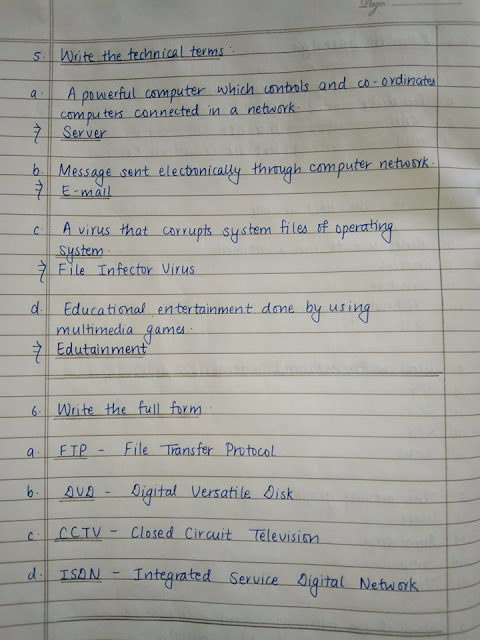 Page:
5. Write the technical terms:
a. A powerful computer which controls and co-ordinates
computers connected in a network.
⇒ Server
b. Message sent electronically through computer network.
⇒ E-mail
c. A virus that corrupts system files of operating
system.
⇒ File Infector Virus
d. Educational entertainment done by using
multimedia games.
⇒ Edutainment
6. Write the full form.
a. FTP - File Transfer Protocol
b. DVD - Digital Versatile Disk
c. CCTV - Closed Circuit Television
d. ISDN - Integrated Service Digital Network